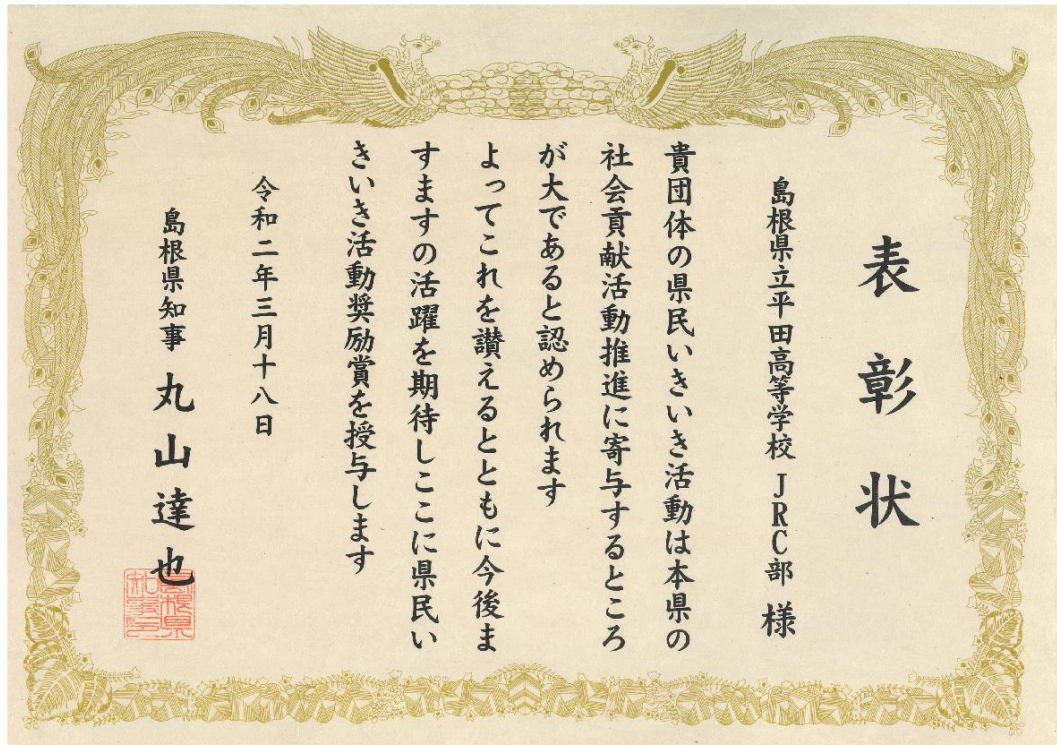 表彰状
島根県立平田高等学校 JRC部 様
貴団体の県民いきいき活動は本県の
社会貢献活動推進に寄与するところ
が大であると認められます
よってこれを讃えるとともに今後ま
すますの活躍を期待しここに県民い
きいき活動奨励賞を授与します
令和二年三月十八日
島根県知事 丸山達也
島根県
知事印